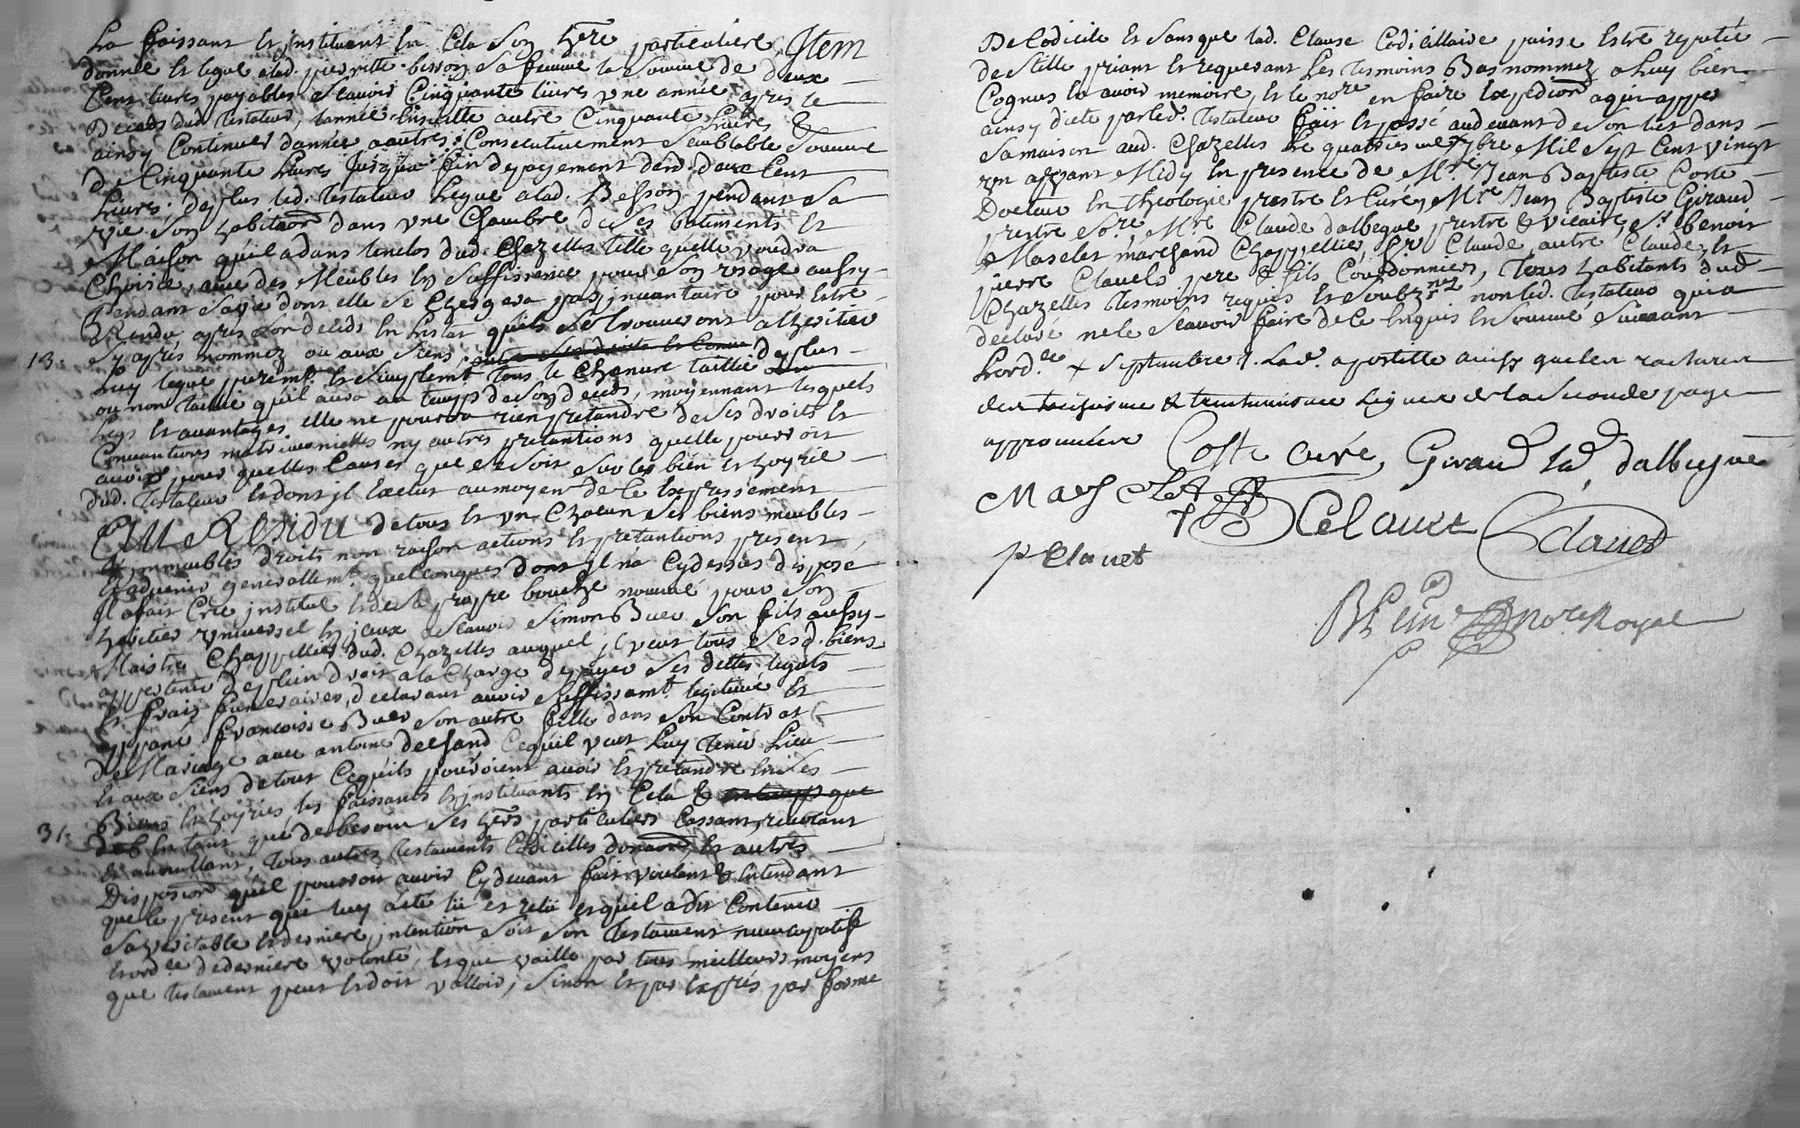 La faisant et instituant en cela son here particuliere, Item
donne et legue alad. pierrette besson sa femme la somme de deux
Cent livres payables scavoir Cinquante livres une année apres le
Deceds dud. testateur, lannée ensuitte autre Cinquante livres &
ainsy Continuer dannée a autres Consecutivement semblable somme
de Cinquante livres jusqua fin de payement desd. deux Cent
livres; de plus led. testateur legue alad. Besson pendant sa
vie son habitaon dans une Chambre de ses batiments et
Maison quil a dans lenclos dud. Chazelles telle quelle voudra
Choisir, avec des Meubles en suffisence pour son usage aussy
Pendant sa vie dont elle se Chargera par inventaire pour estre
Rendu apres son deceds en lestat quils se trouveront alheritier
sy apres nommez ou aux siens,
13. Luy legue puremt. et simplemt. tous le Chenvre taillié de plus
ou non taillié quil aura au temps de son deceds, moyennant lesquels
legs et avantages elle ne pourra rien pretandre de ses droits et
Convantions matrimonielles ny autres pretantions quelle pourroit
avoir pour quelles Causes que ce soit sur les bien et hoyrie
dud. Testateur et dont il lexclut au moyen de ce expressement
Au Residu de tous et un Chacun ses biens meubles
Immeubles droits non raison actions et pretantions present
et advenir generallemt. quelconques dont il na cydessus disposé
Il a fait Créé institué et de sa propre bouche nommé pour son
heritier universel scavoir Simon Buer son fils aussy
Maistre Chappellier dud. Chazelles auquel il veut tous sesd. biens
appartenir de plein droit ala Charge de payer ses dettes legats
et frais funeraires, declarant avoir suffissamt. legitimé et
appané francoise Buer son autre fille dans son Contrat
de Mariage avec antoine delsand Cequil veut luy tenir lieu
et aux siens de tout Cequils pouroient avoir et pretandre en ses
Biens et hoyries, les faissants et instituants en Cela &
31. en tant que de besoin ses hers particuliers Cassant, revocant
et annullant, tous autres testaments Codicilles donaons et autres
Disposions quil pourroit avoir Cydevant fait voulant & entendant
que le present qui luy a eté lü et relü et quil a dit Contenir
sa veritable et derniere intention soit son testament nuncupatif
et ordce de derniere volonté et que vaille par tous meilleurs moyens
que testament peut et doit valloir, sinon et par exprés par forme
De Codicile et sans que lad. Clause Codicillaire puisse estre reputée
de stille priant et requerant les tesmoins Bas nommez a luy bien
Cognus en avoir memoire, et le nore en faire expedion a qui appar
ainsy dicté par led. testateur fait et passé audevant de son lict dans
sa maison aud. Chazelles le quatriesme 7bre Mil sept Cent vingt
un apvant Midy en presence de Mre. Jean Baptiste Coste
Docteur en theologie prestre et Curé, Mre Jean Baptiste Giraud
prestre Sore. Mre Claude dalbegue prestre & vicaire, Sr. benoit
Masclet marchand Chappellier, Sr Claude, autre Claude, et
pierre Clavels pere & fils Courdonniers, tous habitants dud.
Chazelles tesmoins requis et soubznes. non led. testateur qui a
declaré ne le scavoir faire de ce enquis et sommé suivant
Lord.ce + septembre 7. Lad. apostille ainsy que les ratures
des treiziesme & trentuniesme lignes de la seconde page
approuvéer
Coste curé, Giraud Sd, dalbegue
Masclet Clavet Clavet
p Clavet
nore Royal